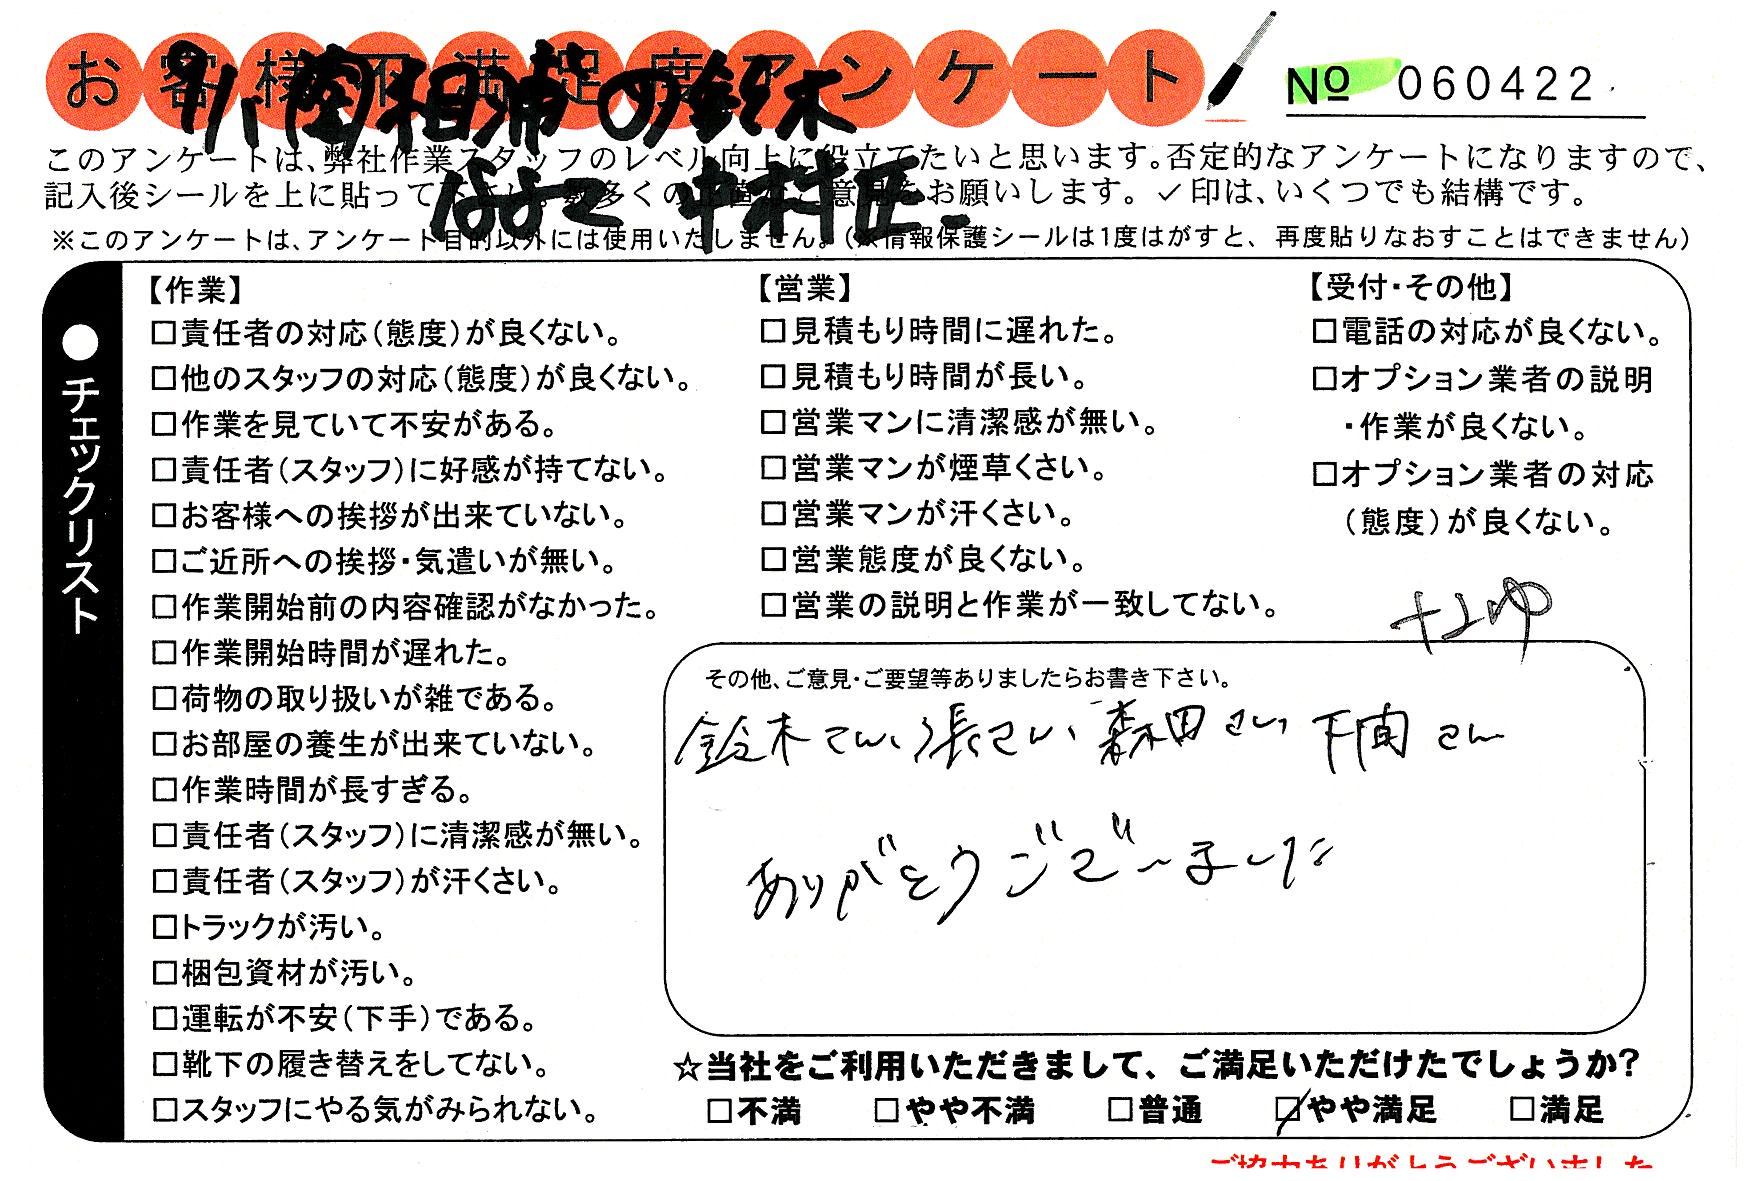 お客様不満足度アンケート
№ 060422
9/1 南相浦の鈴木
このアンケートは、弊社作業スタッフのレベル向上に役立てたいと思います。否定的なアンケートになりますので、
記入後シールを上に貼って下さい。数多くの正直なご意見をお願いします。✓印は、いくつでも結構です。
中村正
※このアンケートは、アンケート目的以外には使用いたしません。(※情報保護シールは1度はがすと、再度貼りなおすことはできません)
●チェックリスト
【作業】
□責任者の対応(態度)が良くない。
□他のスタッフの対応(態度)が良くない。
□作業を見ていて不安がある。
□責任者(スタッフ)に好感が持てない。
□お客様への挨拶が出来ていない。
□ご近所への挨拶・気遣いが無い。
□作業開始前の内容確認がなかった。
□作業開始時間が遅れた。
□荷物の取り扱いが雑である。
□お部屋の養生が出来ていない。
□作業時間が長すぎる。
□責任者(スタッフ)に清潔感が無い。
□責任者(スタッフ)が汗くさい。
□トラックが汚い。
□梱包資材が汚い。
□運転が不安(下手)である。
□靴下の履き替えをしてない。
□スタッフにやる気がみられない。
【営業】
□見積もり時間に遅れた。
□見積もり時間が長い。
□営業マンに清潔感が無い。
□営業マンが煙草くさい。
□営業マンが汗くさい。
□営業態度が良くない。
□営業の説明と作業が一致してない。
【受付・その他】
□電話の対応が良くない。
□オプション業者の説明
・作業が良くない。
□オプション業者の対応
(態度)が良くない。
その他、ご意見・ご要望等ありましたらお書き下さい。
鈴木さん、張さん、森田さん 下間さん
ありがとうございました
☆当社をご利用いただきまして、ご満足いただけたでしょうか?
□不満 □やや不満 □普通 ☑やや満足 □満足
ご協力ありがとうございました